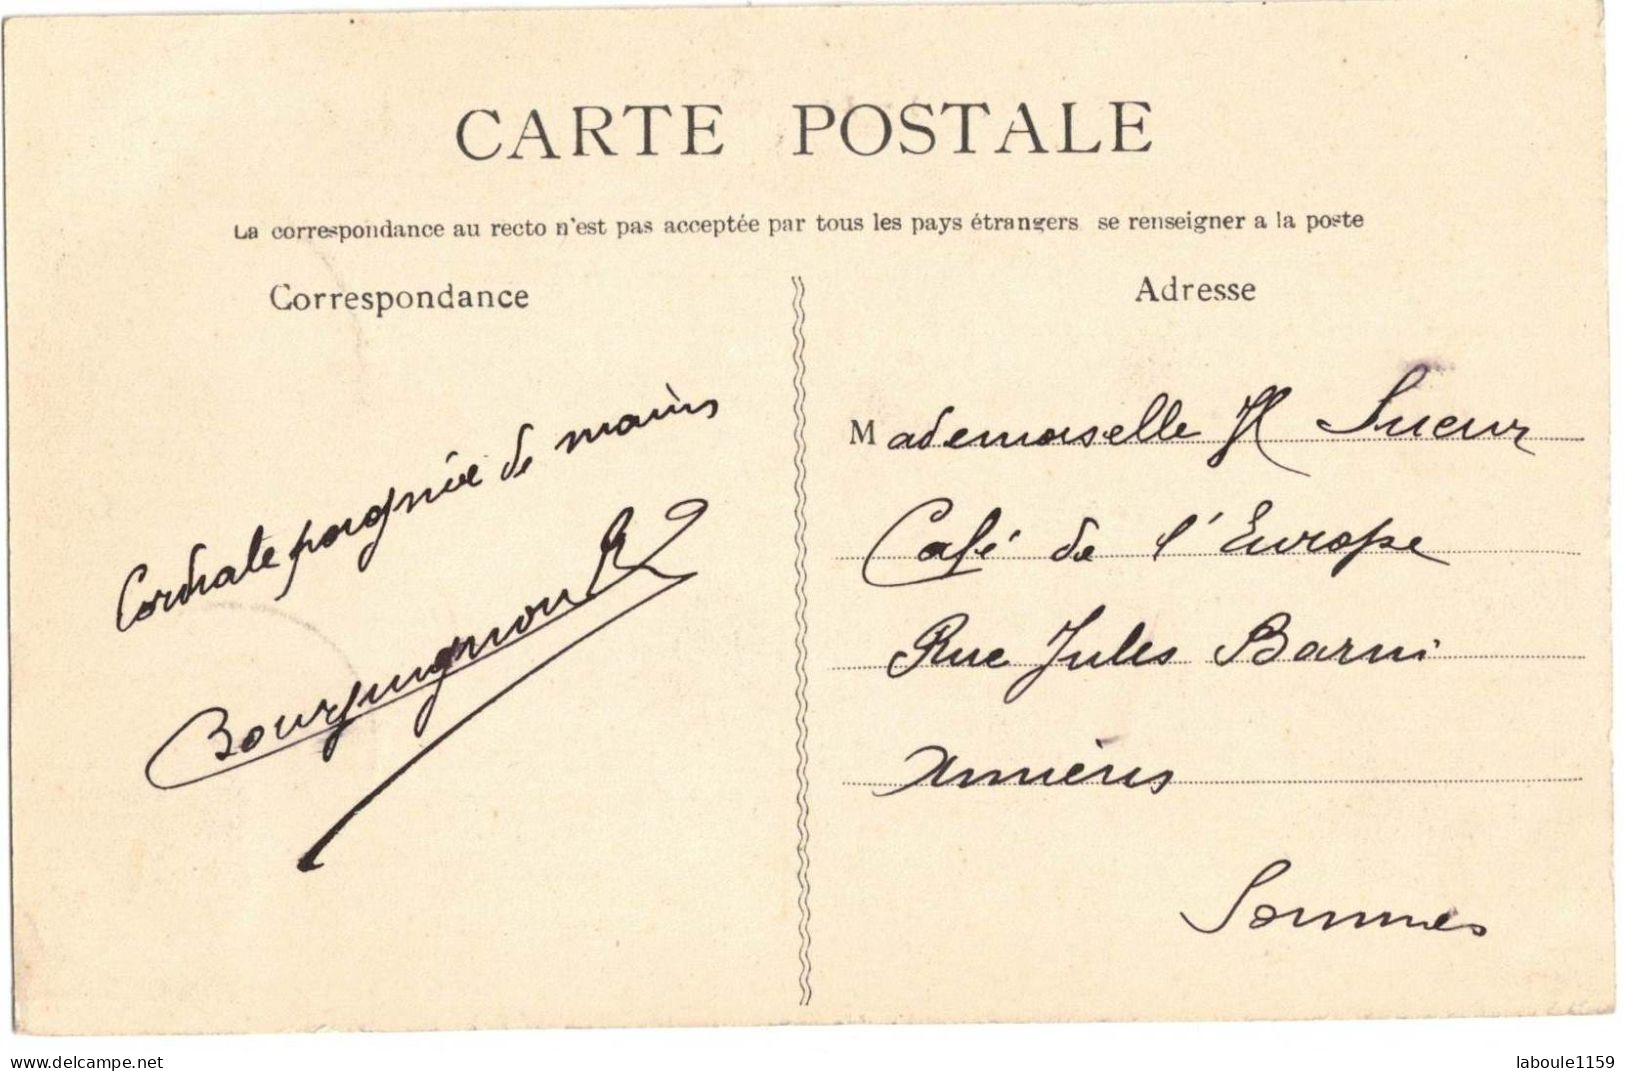 CARTE POSTALE
La correspondance au recto n'est pas acceptée par tous les pays étrangers se renseigner a la poste
Correspondance
Adresse
Cordiale poignée de mains
Bourguignon
Mademoiselle H Sueur
Café de l'Europe
Rue Jules Barni
Amiens
Sommes
www.delcampe.net
laboule1159